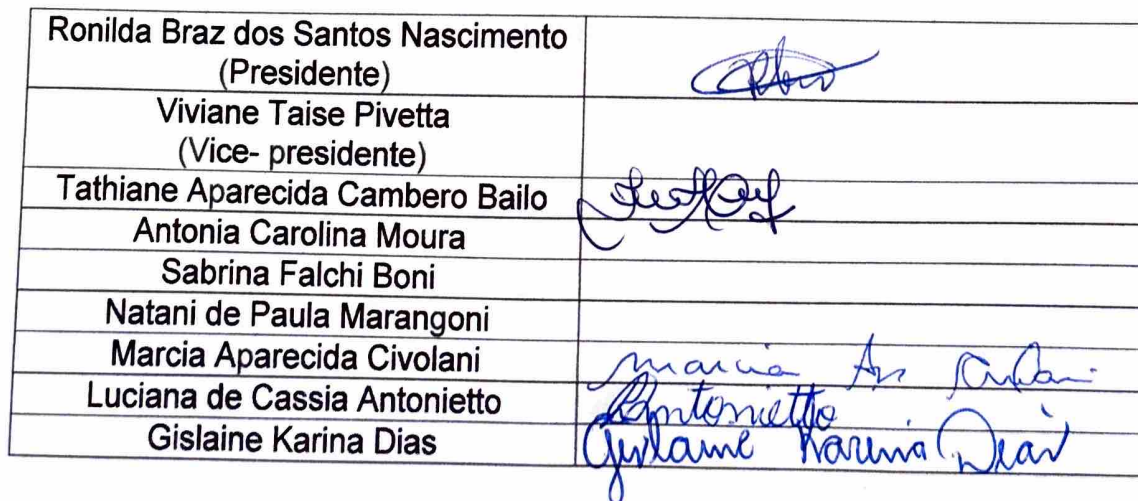 Ronilda Braz dos Santos Nascimento
(Presidente)
Viviane Taise Pivetta
(Vice- presidente)
Tathiane Aparecida Cambero Bailo
Antonia Carolina Moura
Sabrina Falchi Boni
Natani de Paula Marangoni
Marcia Aparecida Civolani
marcia Ap
Luciana de Cassia Antonietto
LAntonietto
Gislaine Karina Dias
Gislaine Karina Dias